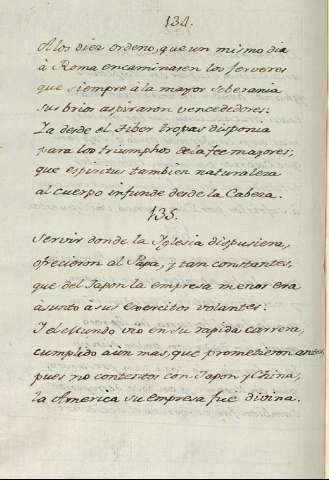 134.
A los diez ordeno, que un mismo dia
à Roma encaminasen los fervores
que siempre à la mayor Soberania
sus brios aspiraron vencedores:
Ya desde el Tiber tropas disponia
para los triumphos de la fee mayores,
que espiritus tambien naturaleza
al cuerpo infunde desde la Cabeza.
135.
Servir donde la Iglesia dispusiera,
ofrecieron al Papa, y tan constantes,
que del Japon la empresa menor era
àsunto à sus Exercitos volantes:
I el Mundo vio en su rapida carrera,
cumplido aùn mas, que prometieron antes,
pues no contentos con Japon y China,
la America su empresa fue divina.